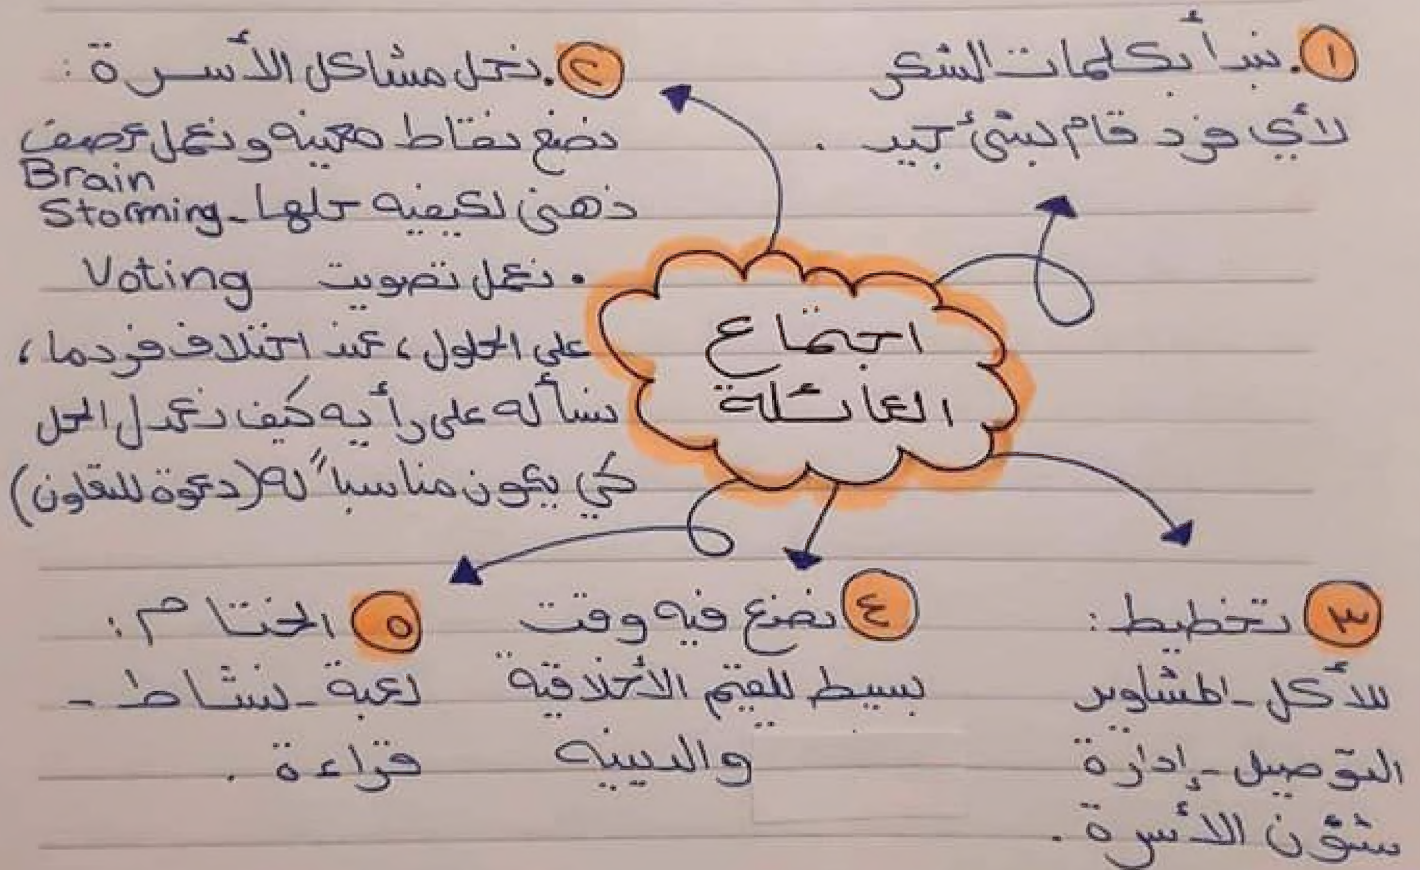 اجتماع
العائلة
١. نبدأ بكلمات الشكر
لأي فرد قام بشئ جيد .
٢. نحل مشاكل الأسرة :
نضع نقاط معينه ونعمل عصف
ذهني لكيفيه حلها - Brain Storming
• نعمل تصويت Voting
على الحلول ، عند اختلاف فرد ما ،
نسأله على رأيه كيف نعدل الحل
كي يكون مناسباً له (دعوة للتعاون)
٣ تخطيط :
للأكل - المشاوير
التوصيل - إدارة
شؤن الأسرة .
٤ نضع فيه وقت
بسيط للقيم الأخلاقية
والدينيه
٥ الختام :
لعبة - نشاط -
قراءة .